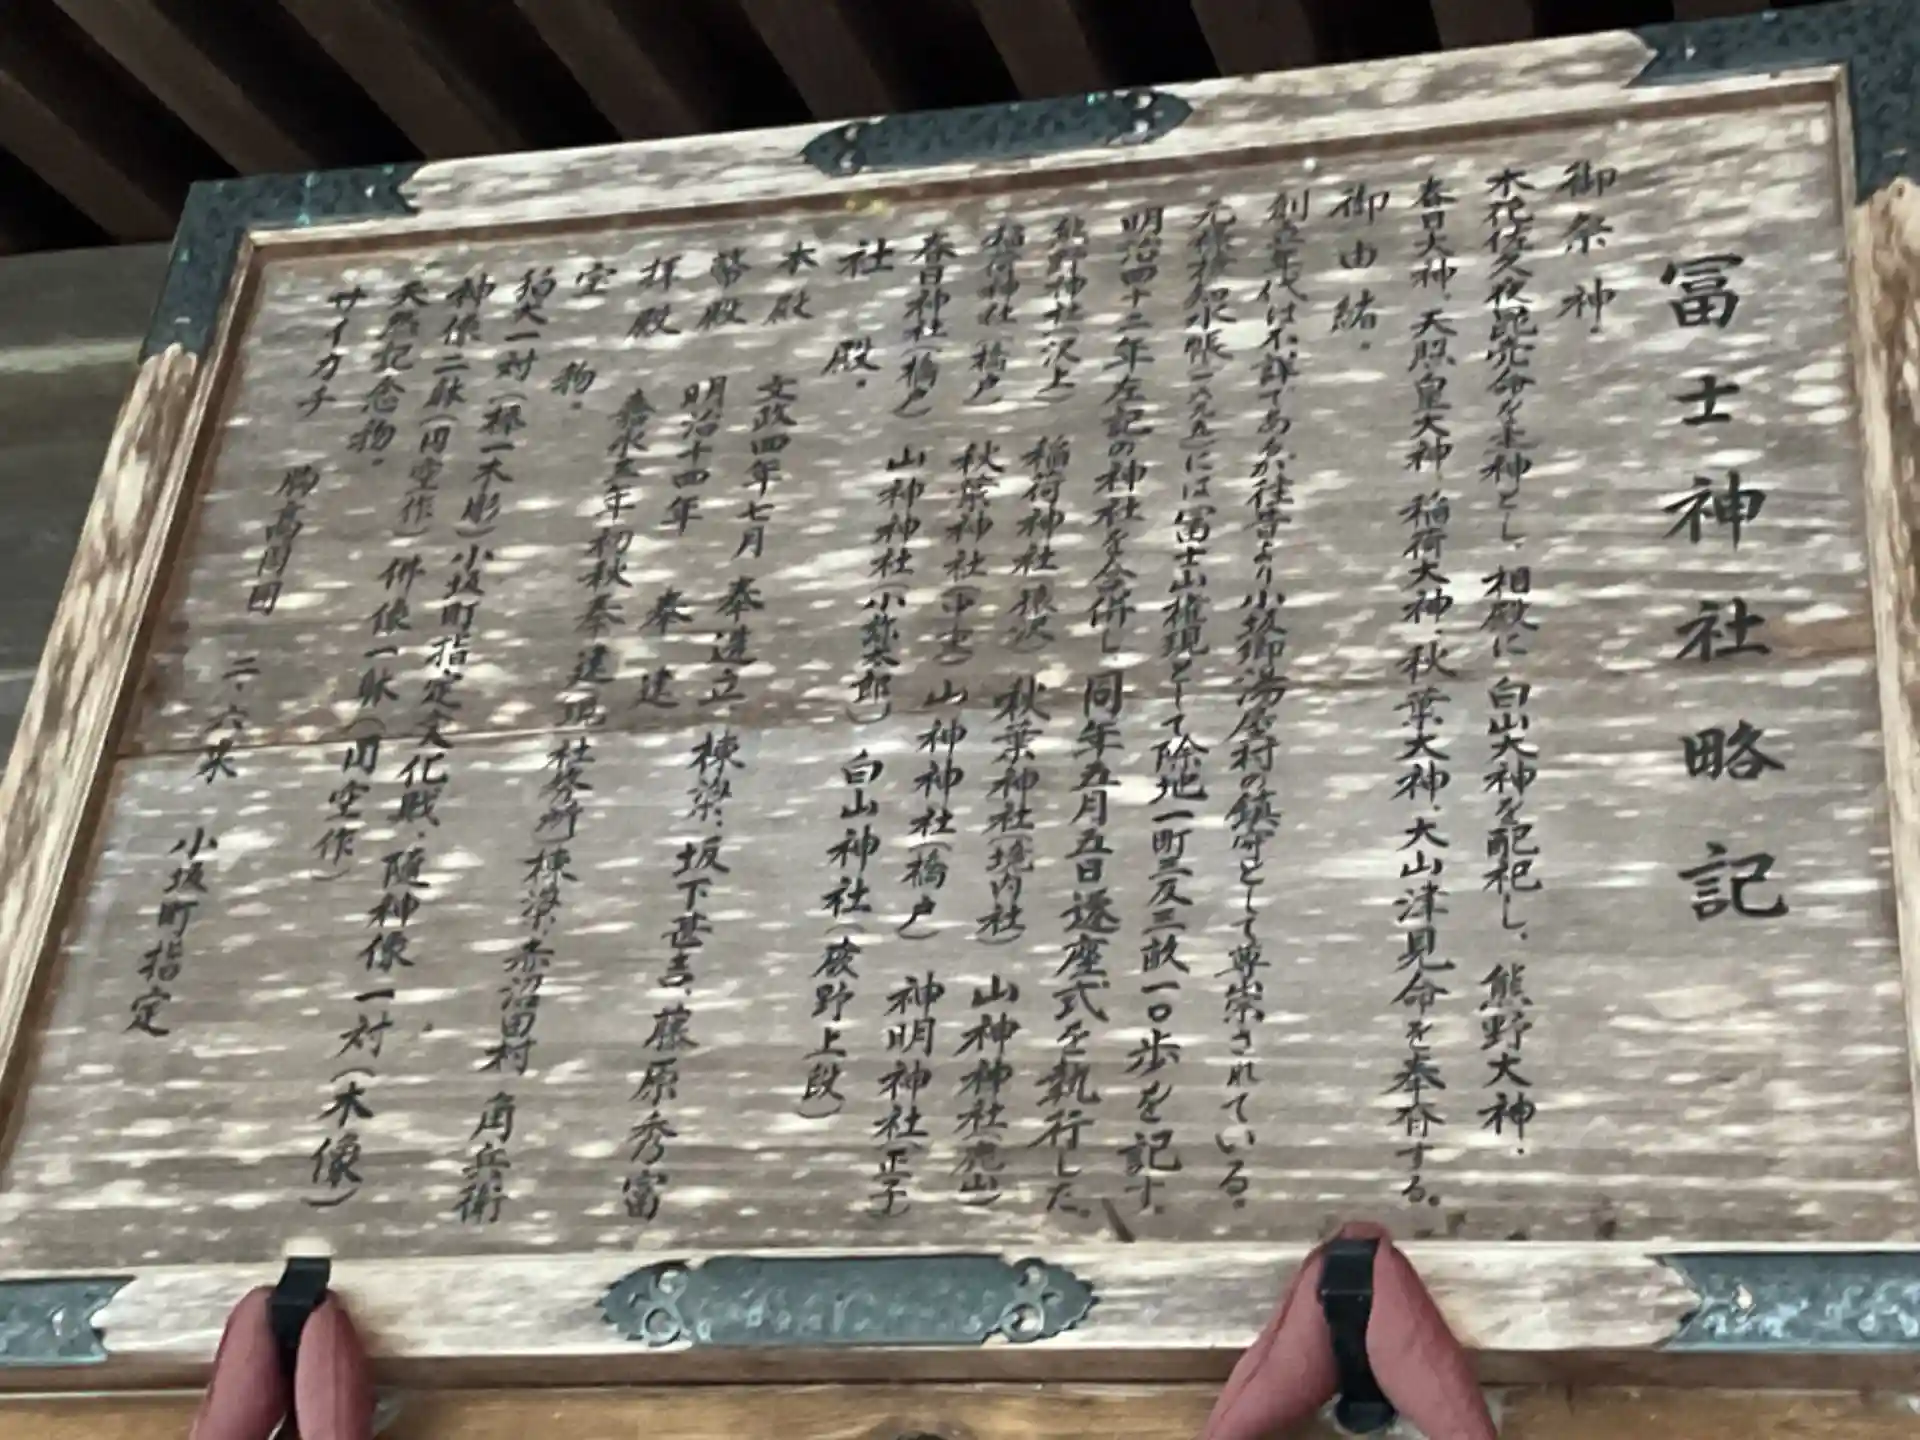 冨士神社略記
御祭神.
木花佐久夜毘売命を主神とし、相殿に白山大神を配祀し、熊野大神、
春日大神、天照皇大神、稲荷大神、秋葉大神、大山津見命を奉斎する。
御由緒.
創立年代は不詳であるが往昔より小坂郷湯屋村の鎮守として尊崇されている。
には冨士山権現として除地一町三反三畝一〇歩を記す。
明治四十二年左記の神社を合併し同年五月五日遷座式を執行した。
熊野神社(沢上) 稲荷神社 秋葉神社(境内社) 山神神社
稲荷神社(橋戸 秋葉神社 山神神社(橋戸) 神明神社(正子
春日神社(橋戸) 山神神社(小弥太郎) 白山神社(萩野上段)
社殿.
本殿 文政四年七月 奉造立 棟梁、坂下甚吉、藤原秀富
幣殿 明治十四年 奉建
拝殿 嘉永五年初秋奉建 社務所 棟梁、赤沼田村 角兵衛
宝物.
狛犬一対(一木彫)小坂町指定文化財、随神像一対(木像)
神像二躰(円空作) 併像一躰(円空作)
天然記念物.
サイカチ 胸高周囲 二.六米 小坂町指定